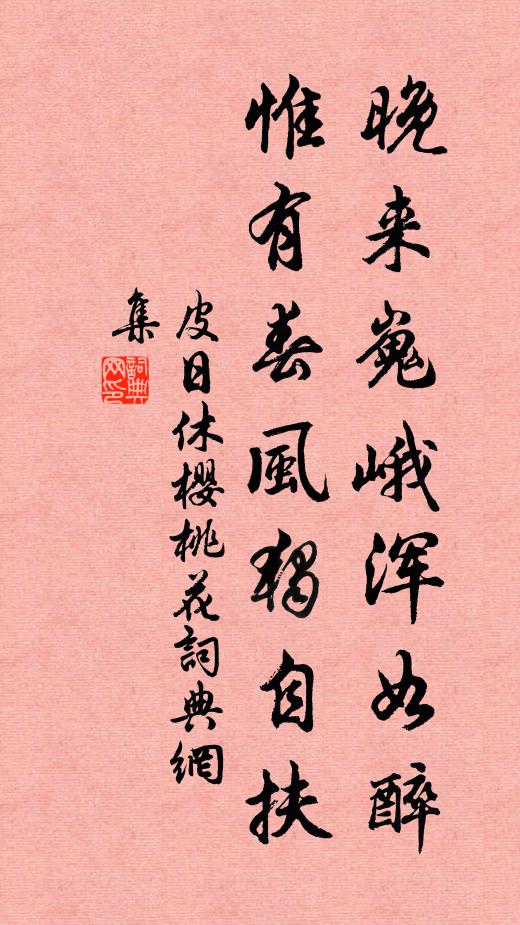 晚来嵬峨浑如醉
惟有春風獨自扶
皮日休櫻桃花詞典網
集
詞典网印